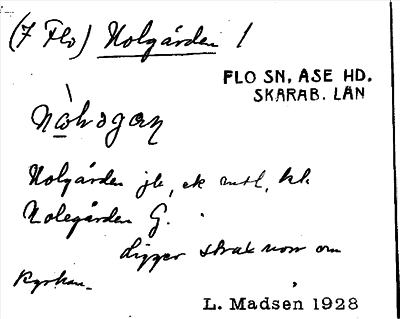 (7 Flo) Nolgården 1
FLO SN, ASE HD.
SKARAB. LÄN
Nolgården jb, ek kbl, kk
Nolegården G.
Ligger strax norr om
kyrkan.
L. Madsen 1928